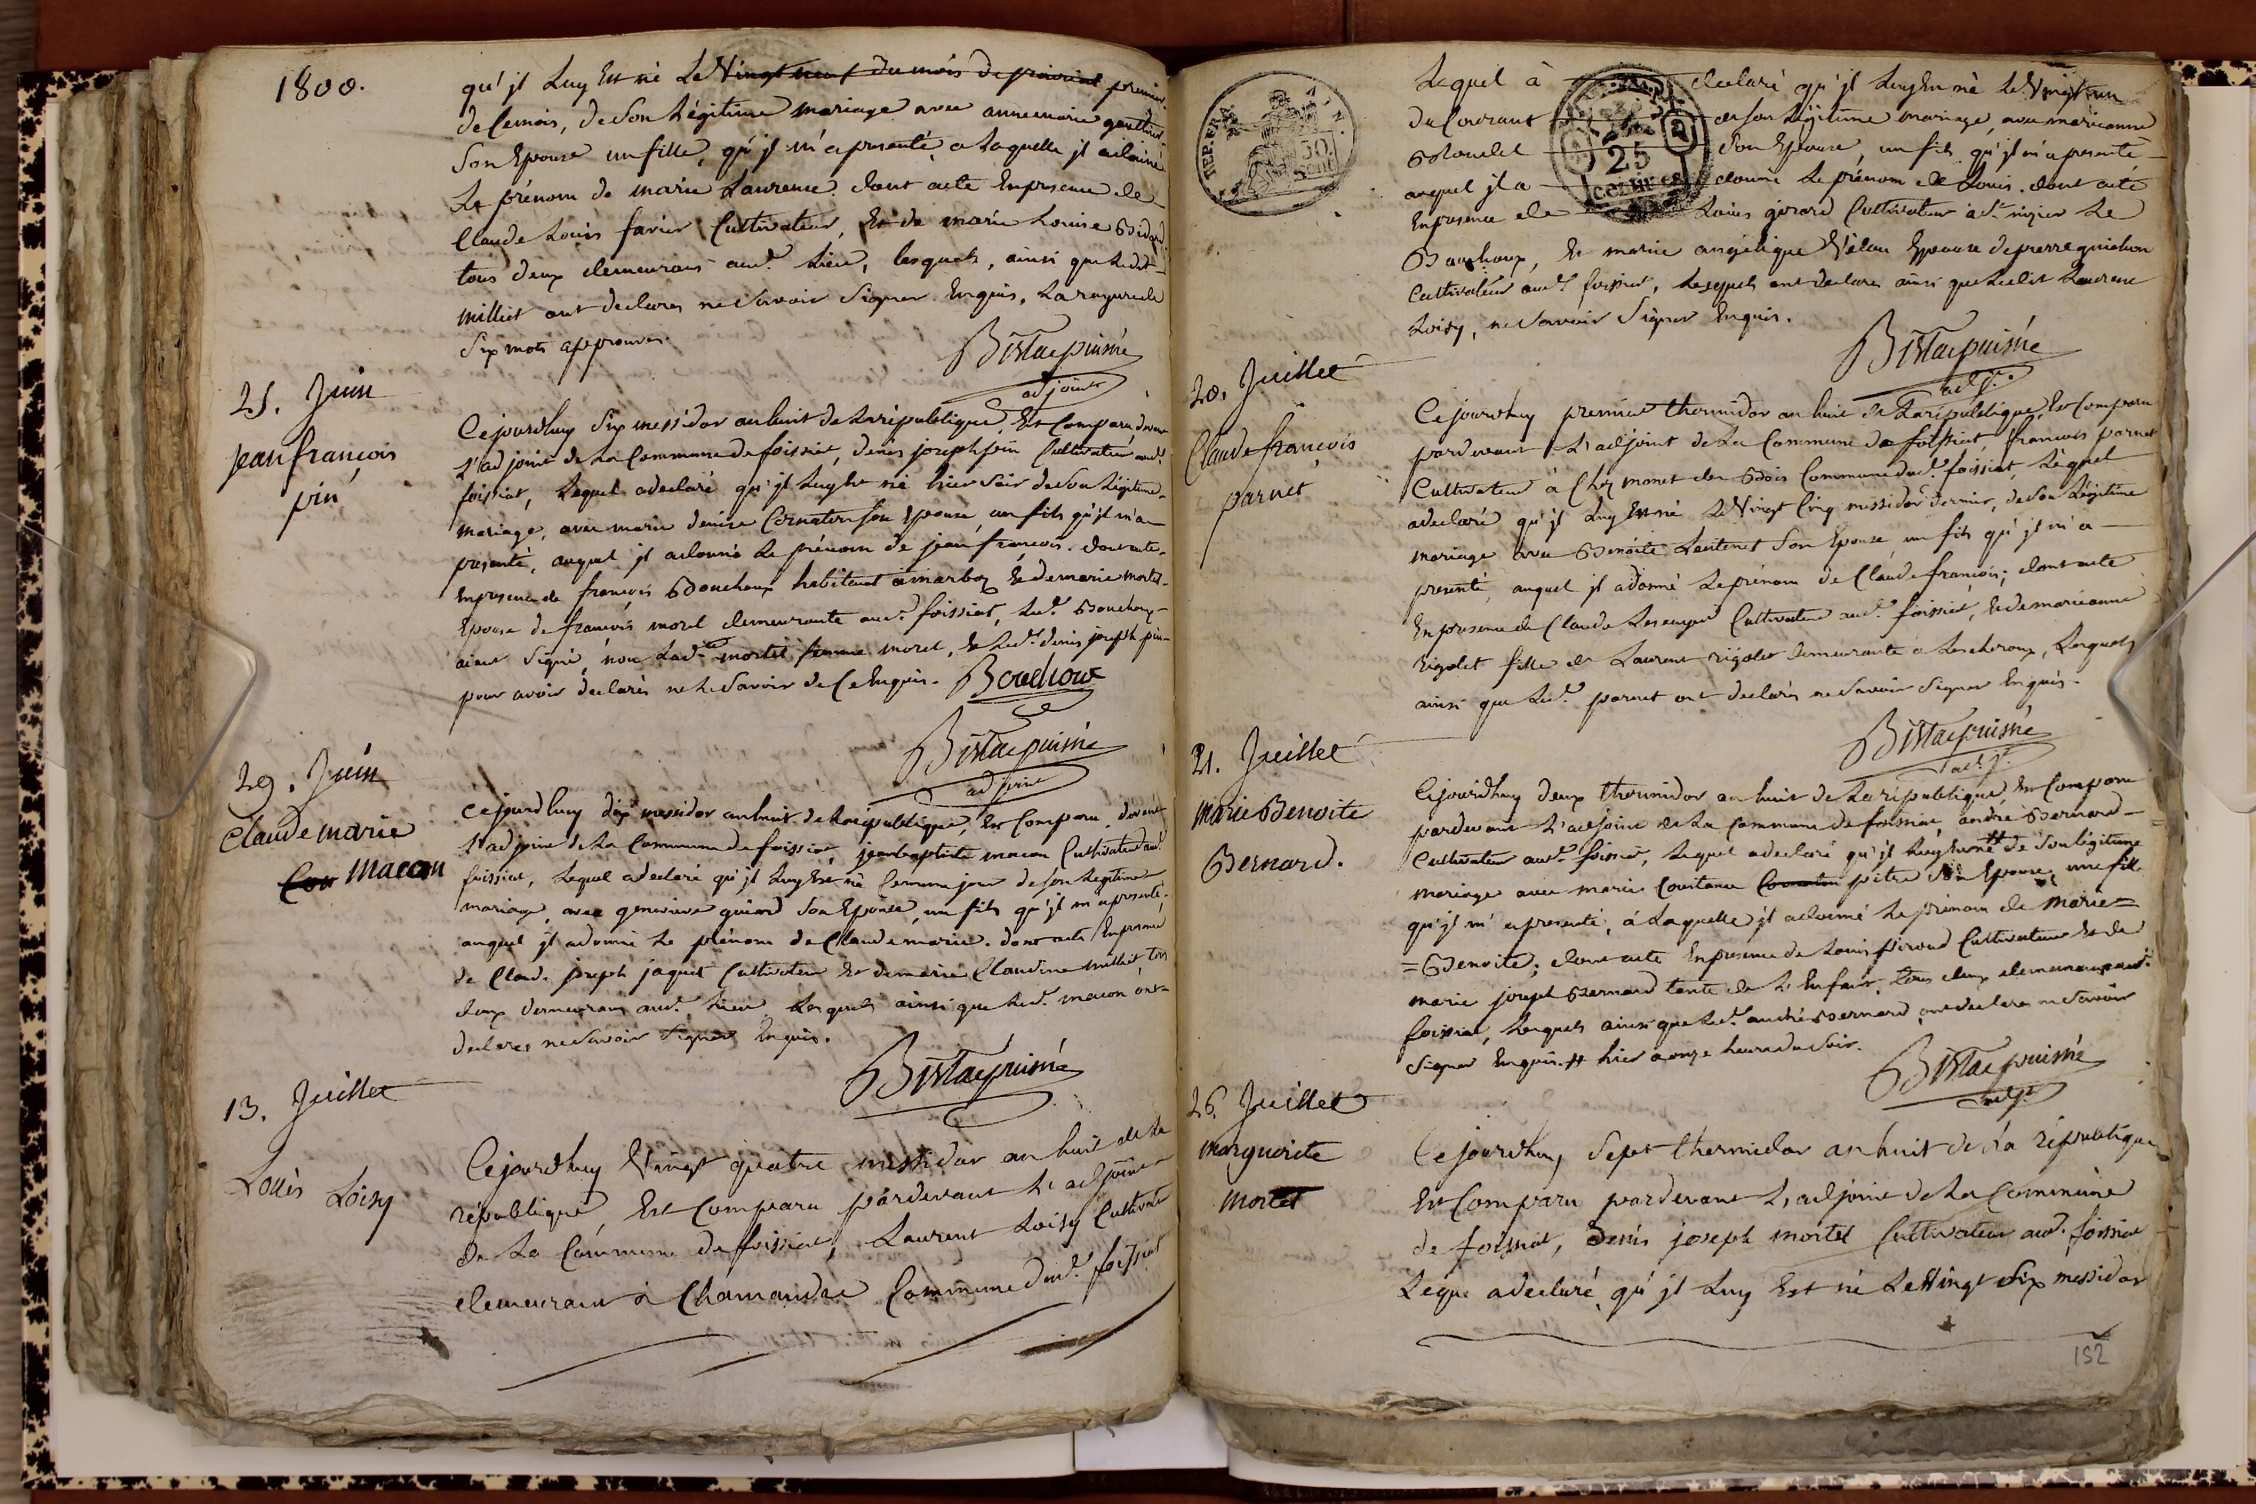 1800.
qu'jl Luy Est né Le Vingt neuf du mois de prairial premier
de Cemois, de Son Légitime mariage avec annemarie
Son Epouse un fille, qu'jl m'a presenté, a Laquelle jl a donné
Le prénom de marie Laurence dont acte En presence de
Claude Louis favier Cultivateur, Et de marie Louise
tous deux demeurans aud.t Lieu, lesquels, ainsi que Ledit
milliet ont declarés ne Savoir Signer Enquis. La rayure de
Six mots approuvée.
Bistac puisné
adjoint
25. Juin
Jean françois
pin
Cejourdhuy Six messidor an huit de La république, Est Comparu devant
L'adjoint de La Commune de foissiat, denis joseph pin Cultivateur aud.t
foissiat, Lequel a declaré qu'jl Luy Est né hier Soir de Son Légitime
mariage, avec marie denise Son Epouse un fils qu'jl m'a
presenté, auquel jl a donné Le prénom de jean françois. dont acte
En presence de françois Bouchoux habitant a marboz Et de marie mortel
Epouse de françois morel demeurante aud.t foissiat, Led.t Bouchoux
aiant Signé, non Lad.te mortel femme morel, & Led.t denis joseph pin
pour avoir declarés ne Le Savoir de Ce Enquis. Bouchoux
Bistac puisné
adjoint
29. Juin
Claude marie
Cou Macon
Cejourdhuy dix messidor an huit de La république, Est Comparu devant
L'adjoint de La Commune de foissiat, jean baptiste macon Cultivateur aud.t
foissiat, Lequel a declaré qu'jl Luy Est né Cemême jour de Son Légitime
mariage, avec genevieve guiard Son Epouse, un fils qu'jl m'a presenté,
auquel jl a donné Le prénom de Claude marie. dont acte En presence
de Claude joseph jaquet Cultivateur Et de marie Claudine milliet, tous
deux demeurans aud.t Lieu Lesquels ainsi que Led.t macon ont
declarés ne Savoir Signer Enquis.
Bistac puisné
13. Juillet
Louis Loisy
Cejourdhuy Vingt quatre messidor an huit de La
république, Est Comparu pardevant L'adjoint
de La Commune de foissiat, Laurent Loisy Cultivateur
demeurant à Chamandre Commune dud.t foissiat
REP. FRA.
50
CENT.
25
CENTIMES
Lequel à declaré qu'jl Luy Est né Le Vingt un
du Courant de Son Légitime mariage, avec marieanne
Son Epouse, un fils qu'jl m'a presenté
auquel jl a donné Le prénom de Louis. dont acte
En presence de Louis girard Cultivateur à S.t nizier Le
Bouchoux, Et marie angélique Epouse de pierre guichon
Cultivateur aud.t foissiat, Lesquels ont declarés ainsi que Ledit Laurent
Loisy, ne Savoir Signer Enquis.
Bistac puisné
adj.t
20. Juillet
Claude françois
parnet
Cejourdhuy premier thermidor an huit de La république, Est Comparu
pardevant L'adjoint de La Commune de foissiat françois parnet
Cultivateur à Chez monet des Bois Commune dud.t foissiat, Lequel
a declaré qu'jl Luy Est né Le Vingt Cinq messidor dernier, de Son Légitime
mariage avec Benoite Son Epouse, un fils qu'jl m'a
presenté, auquel jl a donné Le prénom de Claude françois; dont acte
En presence de Claude Cultivateur aud.t foissiat, Et de marieanne
rigolet fille de Laurent rigolet demeurante a Lescheroux, Lesquels
ainsi que Led.t parnet ont declarés ne Savoir Signer Enquis.
Bistac puisné
adj.t
21. Juillet
Marie Benoite
Bernard.
Cejourdhuy deux thermidor an huit de La république, Est Comparu
pardevant L'adjoint de La Commune de foissiat, andré Bernard
Cultivateur aud.t foissiat, Lequel a declaré qu'jl Luy Est né # de Son légitime
mariage avec marie Constance pitre Son Epouse, une fille
qu'jl m'a presenté, à Laquelle jl a donné Le prénom de Marie=
=Benoite; dont acte En presence de Louis piroud Cultivateur Et de
marie joseph Bernard tante de L'Enfant, tous deux demeurans aud.t
foissiat, Lesquels ainsi que Led.t andré Bernard ont declarés ne Savoir
Signer Enquis. # hier a onze heures du Soir.
Bistac puisné
adj.t
26. Juillet
Marguerite
Mortel
Cejourdhuy Sept thermidor an huit de La république
Est Comparu pardevant L'adjoint de La Commune
de foissiat, denis joseph mortel Cultivateur aud.t foissiat
Leque a declaré qu'jl Luy Est né Le Vingt Six messidor
152